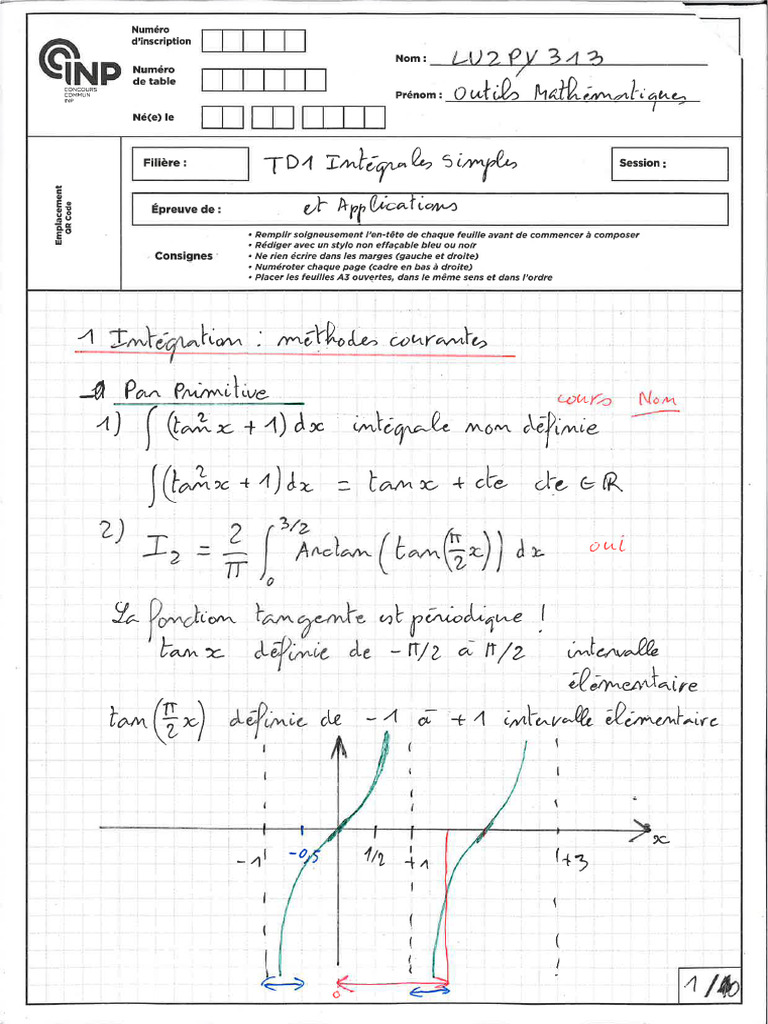 INP
CONCOURS
COMMUN
INP
Numéro
d'inscription
Numéro
de table
Né(e) le
Nom : LU2PY313
Prénom : Outils Mathématiques
Emplacement
QR Code
Filière : TD1 Intégrales Simples
Session :
Épreuve de : et Applications
Consignes
• Remplir soigneusement l'en-tête de chaque feuille avant de commencer à composer
• Rédiger avec un stylo non effaçable bleu ou noir
• Ne rien écrire dans les marges (gauche et droite)
• Numéroter chaque page (cadre en bas à droite)
• Placer les feuilles A3 ouvertes, dans le même sens et dans l'ordre
1 Intégration : méthodes courantes
Par Primitive
cours Non
1) ∫ (tan²x + 1) dx intégrale non définie
∫(tan²x + 1) dx = tan x + cte cte ∈ ℝ
2) I₂ = 2/π ∫₀^{3/2} Arctan (tan(π/2 x)) dx oui
La fonction tangente est périodique !
tan x définie de -π/2 à π/2 intervalle
élémentaire
tan(π/2 x) définie de -1 à +1 intervalle élémentaire
-1 -0,5 1/2 +1 +3 x
0
1/10